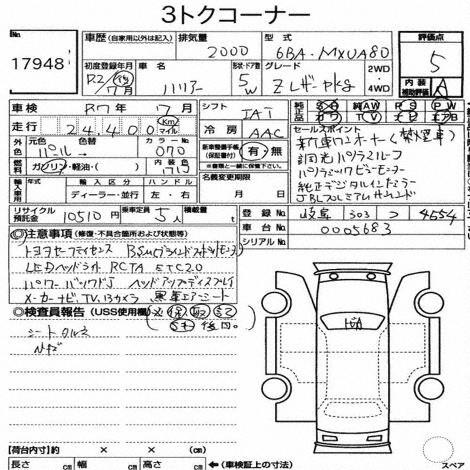 3トクコーナー
No.
17948
車歴 (自家用以外は記入)
排気量
2000
型式
6BA-MXUA80
評価点
5
初度登録年月
R2
7月
車名
ハリアー
形状・ドア数
5W
グレード
Zレザーpkg
2WD
4WD
内装
補助評価
A
車検 R7年 7月
走行 24,400 Km マイル
シフト
IAT
冷房
AAC
外色
元色
パール
色替
カラーNo.
070
燃料
ガソリン・軽油・( )
内装色
新車整備手帳
(保証書付)
有・無
名義変更期限
月 日
純正 SR AW PS PW
カワ TV ナビ エアB
セールスポイント
新車ワンオーナー(禁煙車)
調光パノラマルーフ
パノラミックビューモニター
純正デジタルインナーミラー
JBLプレミアムサウンド
輸入車
年式
輸入区分
ディーラー・並行
ハンドル
左・右
リサイクル預託金
10510円
乗車定員
5人
積載量
t
登録No.
岐阜 303 つ 4554
車台No.
0005683
シリアルNo.
◎注意事項 (修復・不具合箇所および状態等)
トヨタセーフティセンス BSM(ブラインドスポットモニター)
LEDヘッドライト RCTA ETC2.0
パワーバックドア ヘッドアップディスプレイ
メーカーナビ、TV、Bカメラ 黒革エアーシート
◎検査員報告 (USS使用欄)
シートスレ
小キズ
【荷台内寸】約 × × (cm)
長さ cm 幅 cm 高さ cm ← (車検証上の寸法)
スペア